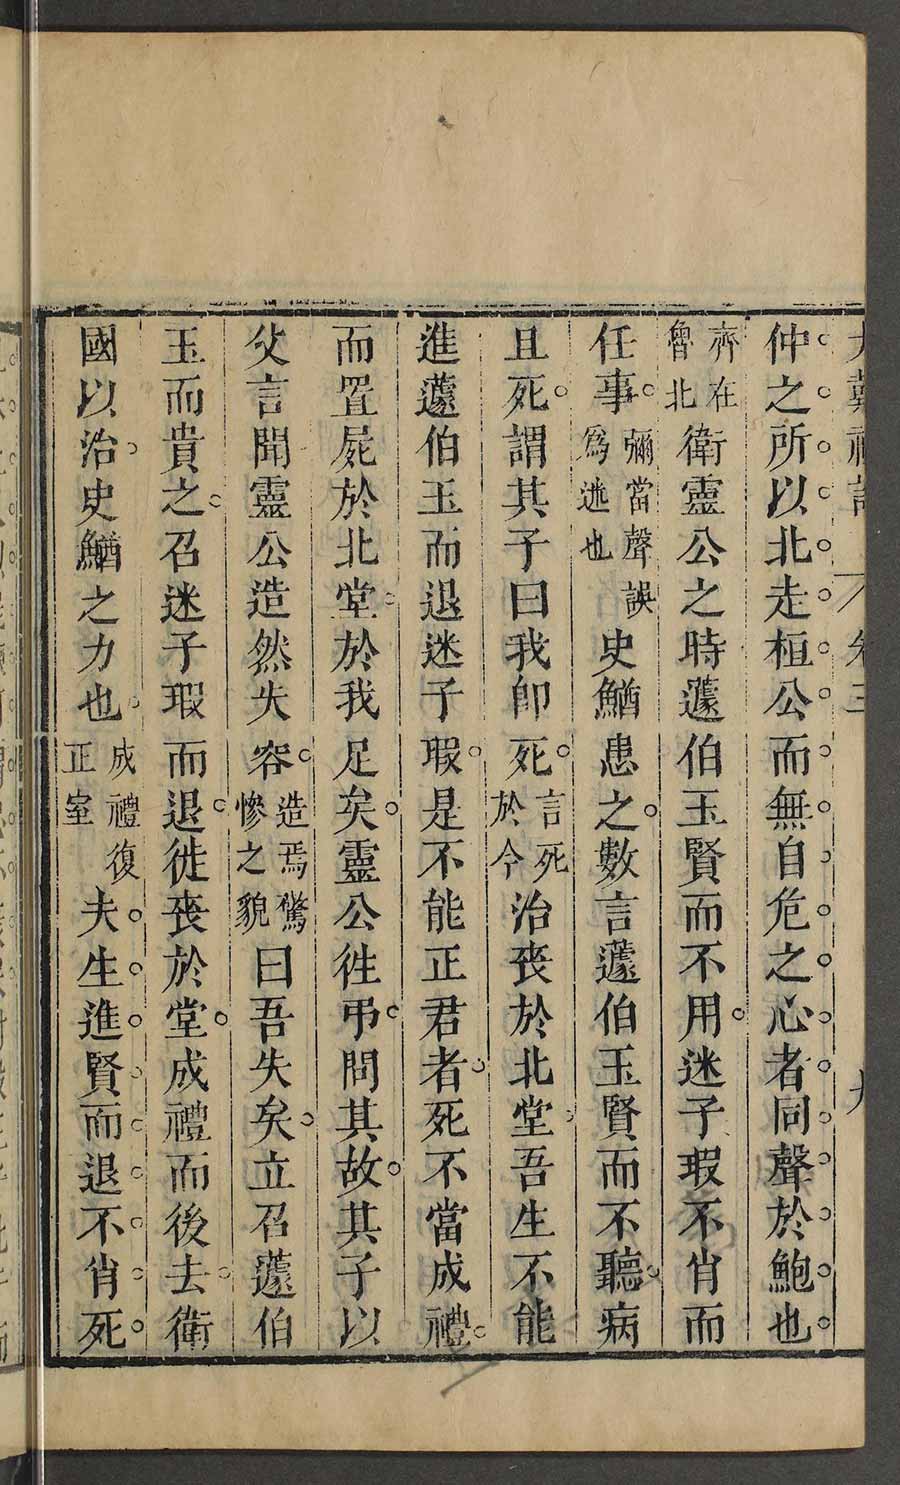 大戴禮記 卷三 九
仲之所以北走桓公而無自危之心者同聲於鮑也
齊在魯北衛靈公之時蘧伯玉賢而不用迷子瑕不肖而
任事彌當聲誤爲迷也史鰌患之數言蘧伯玉賢而不聽病
且死謂其子曰我卽死言死於今治喪於北堂吾生不能
進蘧伯玉而退迷子瑕是不能正君者死不當成禮
而置屍於北堂於我足矣靈公徃弔問其故其子以
父言聞靈公造然失容造焉驚慘之貌曰吾失矣立召蘧伯
玉而貴之召迷子瑕而退徙喪於堂成禮而後去衛
國以治史鰌之力也成禮復正室夫生進賢而退不肖死